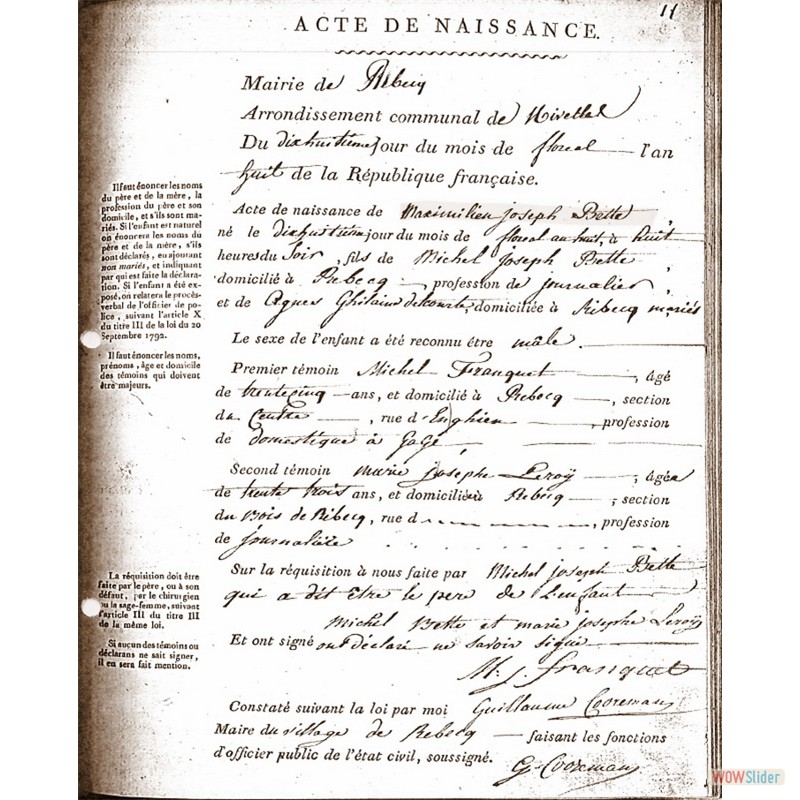 11
ACTE DE NAISSANCE.
Mairie de Rebecq
Arrondissement communal de Nivelles
Du dixhuitieme jour du mois de floreal — l'an
huit de la République française.
Il faut énoncer les noms
du père et de la mère, la
profession du père et son
domicile, et s'ils sont ma-
riés. Si l'enfant est naturel
on énoncera les noms du
père et de la mère, s'ils
sont déclarés, en ajoutant
non mariés, et indiquant
par qui est faite la déclara-
tion. Si l'enfant a été ex-
posé, on relatera le procès-
verbal de l'officier de po-
lice, suivant l'article X
du titre III de la loi du 20
Septembre 1792.
Il faut énoncer les noms,
prénoms, âge et domicile
des témoins qui doivent
être majeurs.
Acte de naissance de Maximilien joseph Bette,
né le dixhuitieme jour du mois de floreal an huit, à huit
heures du Soir, fils de Michel joseph Bette,
domicilié à Rebecq —, profession de journalier,
et de Agnes Ghilaine, domiciliée à Rebecq mariés
Le sexe de l'enfant a été reconnu être mâle.
Premier témoin Michel Franquet —, âgé
de trentecinq — ans, et domicilié à Rebecq —, section
du Centre —, rue d'Enghien —, profession
de domestique à Gagé
Second témoin marie josephe Leroÿ —, âgée
de trente trois ans, et domiciliée à Rebecq —, section
du Bois de Rebecq, rue d —, profession
de journalière
La réquisition doit être
faite par le père, ou à son
défaut, par le chirurgien
ou la sage-femme, suivant
l'article III du titre III
de la même loi.
Si aucun des témoins ou
déclarans ne sait signer,
il en sera fait mention.
Sur la réquisition à nous faite par Michel joseph Bette
qui a dit etre le pere de L'enfant
Michel Bette et marie josephe Leroÿ
Et ont signé ont déclaré ne savoir signé
M. j. franquet
Constaté suivant la loi par moi Guillaume Cooremans
Maire du village de Rebecq — faisant les fonctions
d'officier public de l'état civil, soussigné.
G. Cooremans
WOWSlider